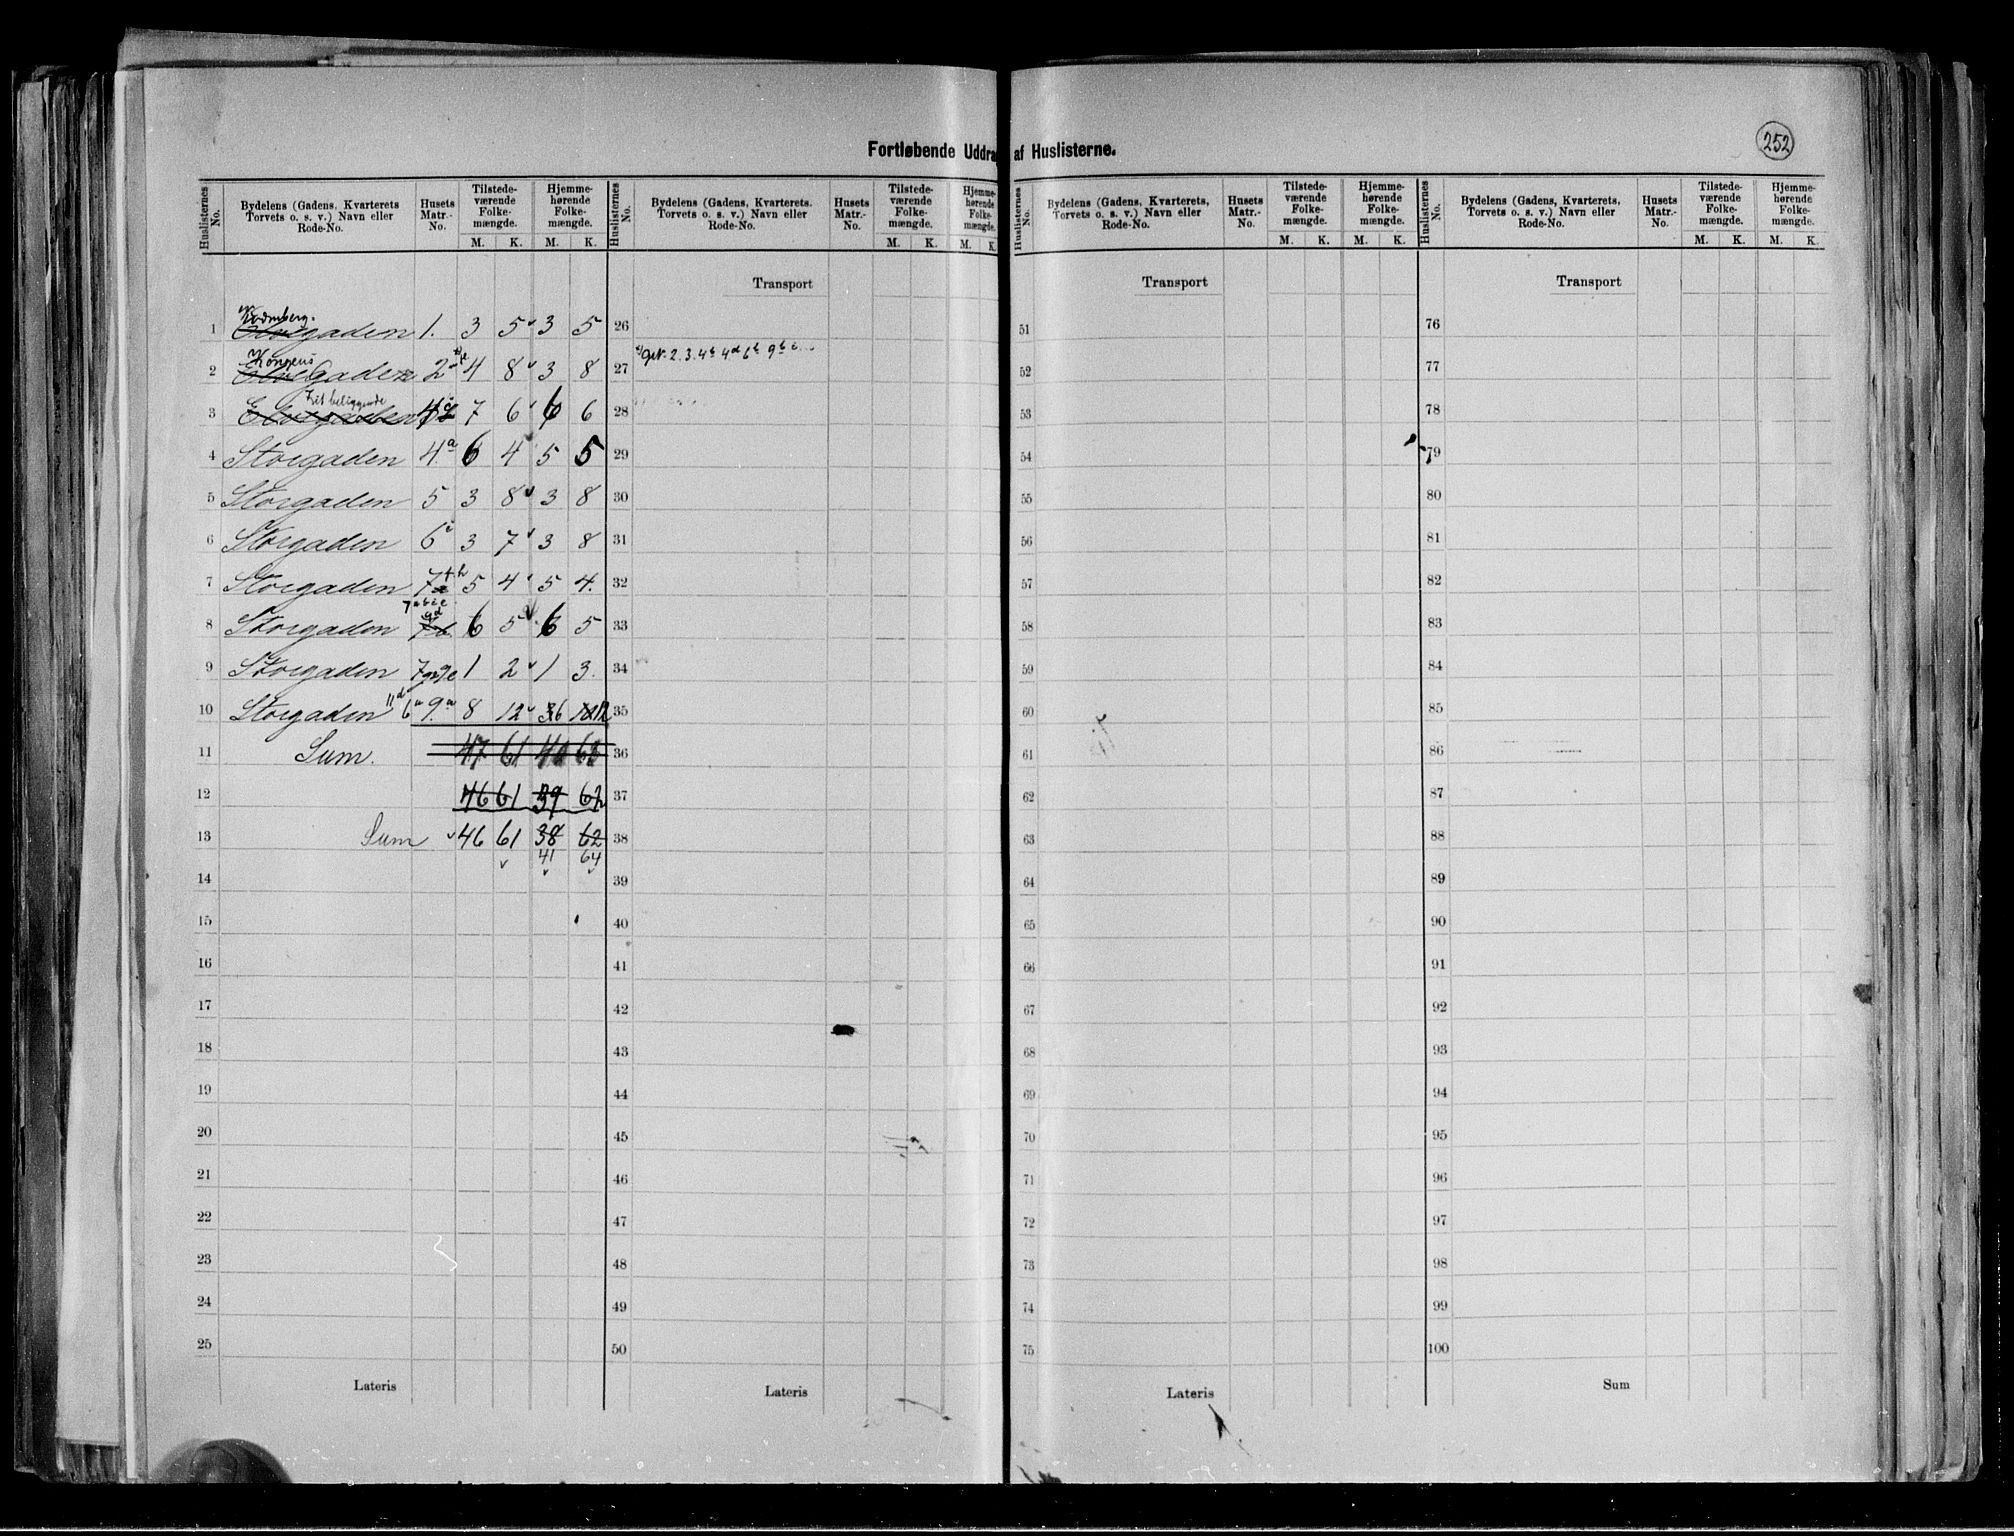 252
Fortløbende Uddrag af Huslisterne.
Huslisternes No. Bydelens (Gadens, Kvarterets Torvets o. s. v.) Navn eller Rode-No. Husets Matr.-No. Tilstedeværende Folkemængde. M. K. Hjemmehørende Folkemængde. M. K.
Huslisternes No. Bydelens (Gadens, Kvarterets, Torvets o. s. v.) Navn eller Rode-No. Husets Matr.-No. Tilstedeværende Folkemængde. M. K. Hjemmehørende Folkemængde. M. K.
Huslisternes No. Bydelens (Gadens, Kvarterets, Torvets o. s. v.) Navn eller Rode-No. Husets Matr.-No. Tilstedeværende Folkemængde. M. K. Hjemmehørende Folkemængde. M. K.
Huslisternes No. Bydelens (Gadens, Kvarterets, Torvets o. s. v.) Navn eller Rode-No. Husets Matr.-No. Tilstedeværende Folkemængde. M. K. Hjemmehørende Folkemængde. M. K.
Transport Transport Transport
1 gaden 1. 3 5 3 5
2 Kongens Gaden 2 4 8 3 8
3 Frit beliggende 7 6 6 6
4 Storgaden 4.a 6 4 5 5
5 Storgaden 5 3 8 3 8
6 Storgaden 6 3 7 3 8
7 Storgaden 7 5 4 5 4.
8 Storgaden 6 5 6 5
9 Storgaden 1 2 1 3.
10 Storgaden 11d 6a 9.a 8 12 6 12
11 Sum. 47 61
12 46 61 39 62
13 Sum 46 61 38 62
41 64
14
15
16
17
18
19
20
21
22
23
24
25
Lateris
26
27 2. 3. 4b 4d 6b 9b
28
29
30
31
32
33
34
35
36
37
38
39
40
41
42
43
44
45
46
47
48
49
50
Lateris
51
52
53
54
55
56
57
58
59
60
61
62
63
64
65
66
67
68
69
70
71
72
73
74
75
Lateris
76
77
78
79
80
81
82
83
84
85
86
87
88
89
90
91
92
93
94
95
96
97
98
99
100
Sum